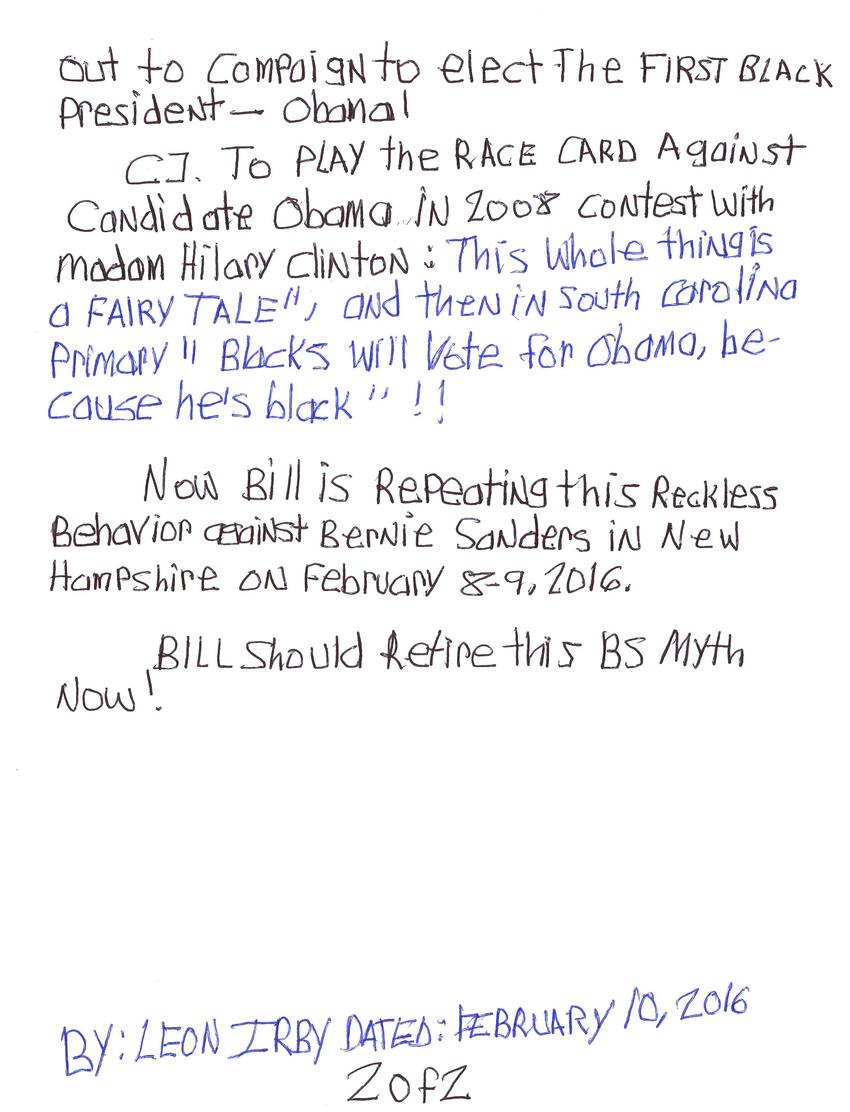 out to Campaign to elect The FIRST BLACK
President — Obama!
C]. To PLAY the RACE CARD Against
Candidate Obama IN 2008 contest with
madam Hilary Clinton : This Whole thing is
a FAIRY TALE", and then in South Carolina
Primary " Blacks will Vote for Obama, be-
cause he's black " !!
Now Bill is Repeating this Reckless
Behavior against Bernie Sanders in New
Hampshire on February 8-9, 2016.
BILL Should Retire this BS Myth
Now!
BY: LEON IRBY DATED: FEBRUARY 10, 2016
2 of 2